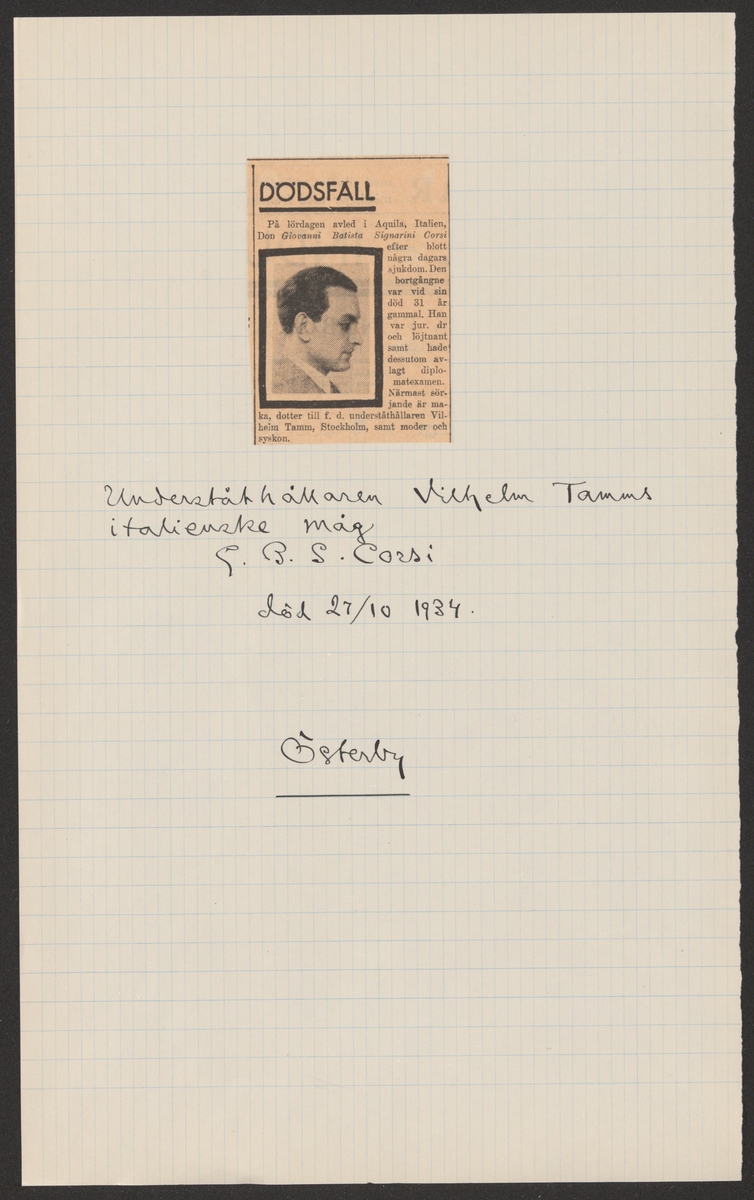 DÖDSFALL
På lördagen avled i Aquila, Italien,
Don Giovanni Batista Signarini Corsi
efter blott
några dagars
sjukdom. Den
bortgångne
var vid sin
död 31 år
gammal. Han
var jur. dr
och löjtnant
samt hade
dessutom av-
lagt diplo-
matexamen.
Närmast sör-
jande är ma-
ka, dotter till f. d. underståthållaren Vil-
helm Tamm, Stockholm, samt moder och
syskon.
Underståthållaren Vilhelm Tamms
italienske måg
G. B. S. Corsi
död 27/10 1934.
Österby